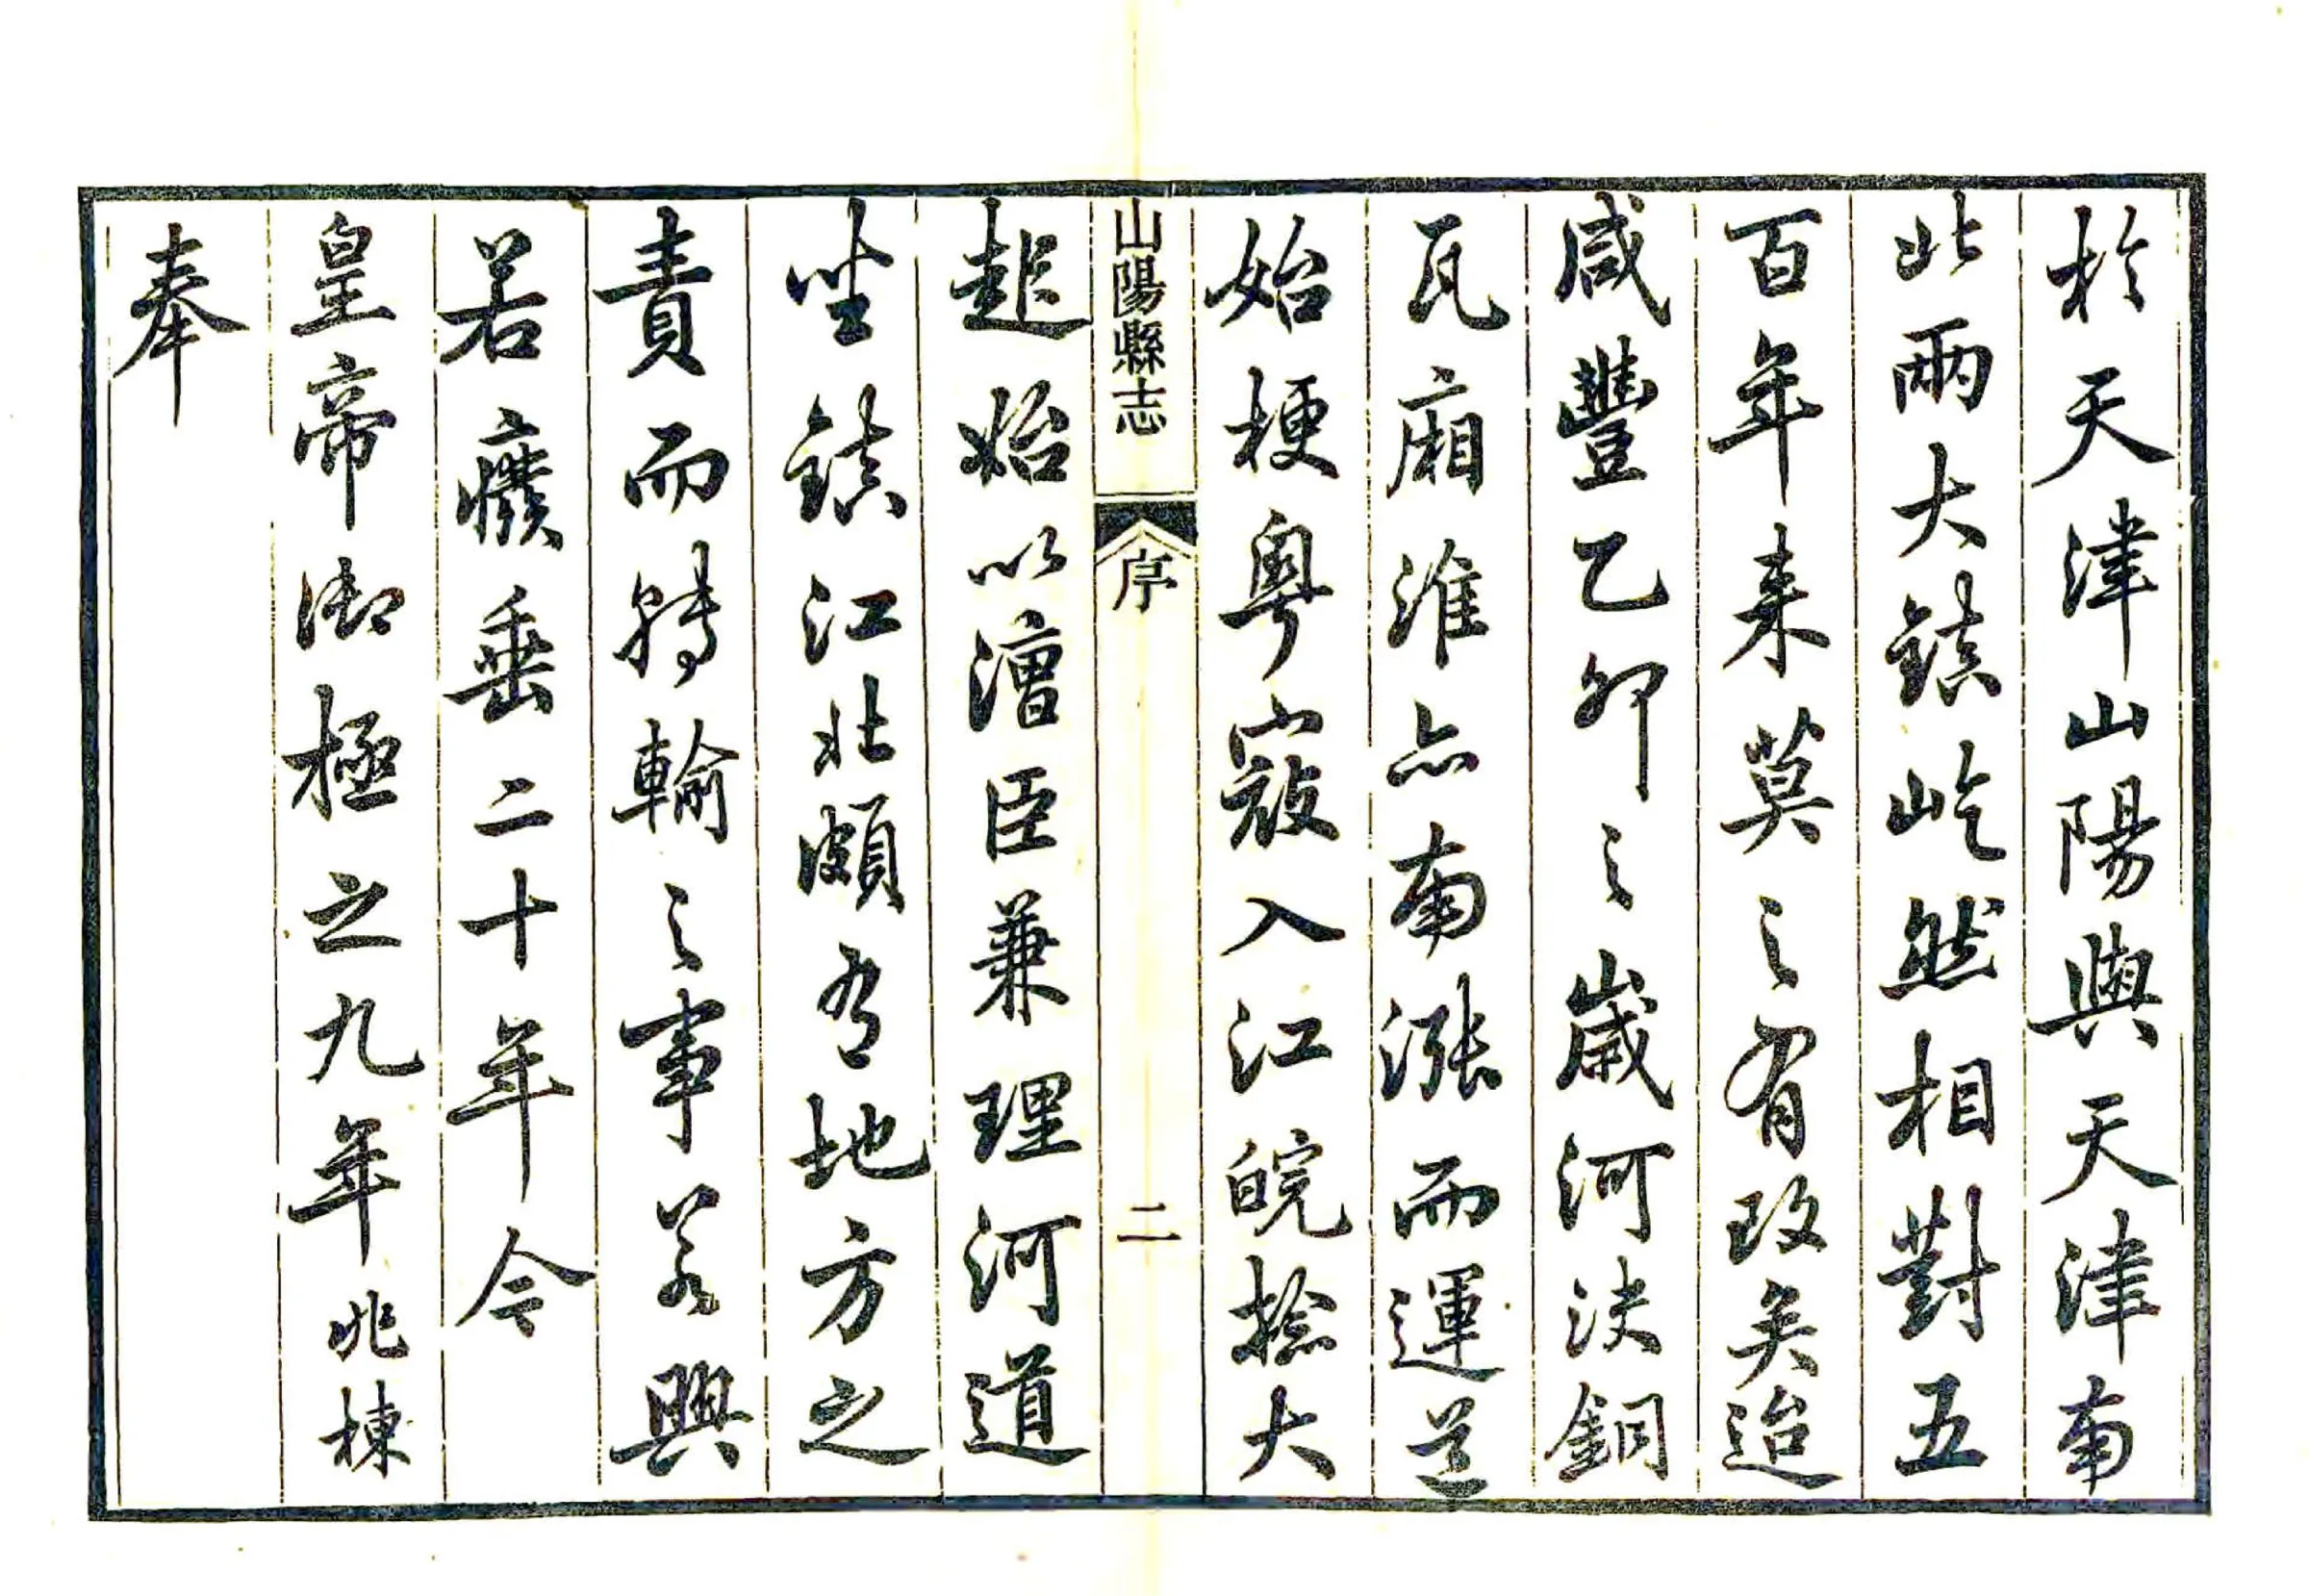 於天津山陽與天津南
北兩大鎮屹然相對五
百年来莫之有改矣迨
咸豐乙卯之歲河決銅
瓦廂淮亦南漲而運道
始梗粵寇入江皖捻大
山陽縣志
序
二
起始以漕臣兼理河道
坐鎮江北頗有地方之
責而轉輸之事若興
若癈垂二十年今
皇帝御極之九年兆棟
奉